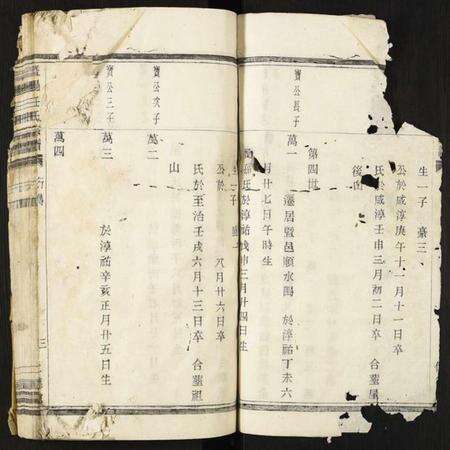 生一子 豪三
公於咸淳庚午十一月十一日卒
氏於咸淳壬申三月初二日卒 合塟屋
後山
第四世
寶公長子
萬一 遷居暨邑順水陽 於淳祐丁未六
月廿七日午時生
氏於淳祐戊申三月廿四日生
生一子
公於 八月廿六日卒
氏於至治壬戌六月十三日卒 合塟屋
山
寶公次子
萬二
寶公三子
萬三 於淳祐辛亥正月廿五日生
萬四